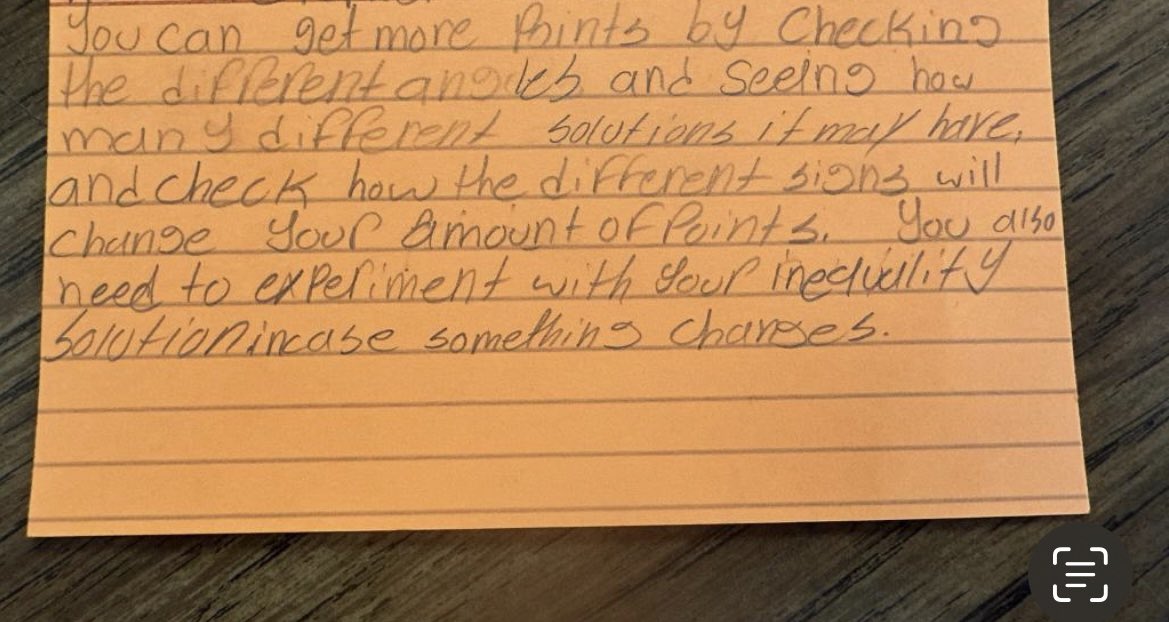 You can get more Points by Checking
the different angles and Seeing how
many different solutions it may have,
and check how the different signs will
change your Amount of Points. You also
need to experiment with your inequality
Solution incase something changes.